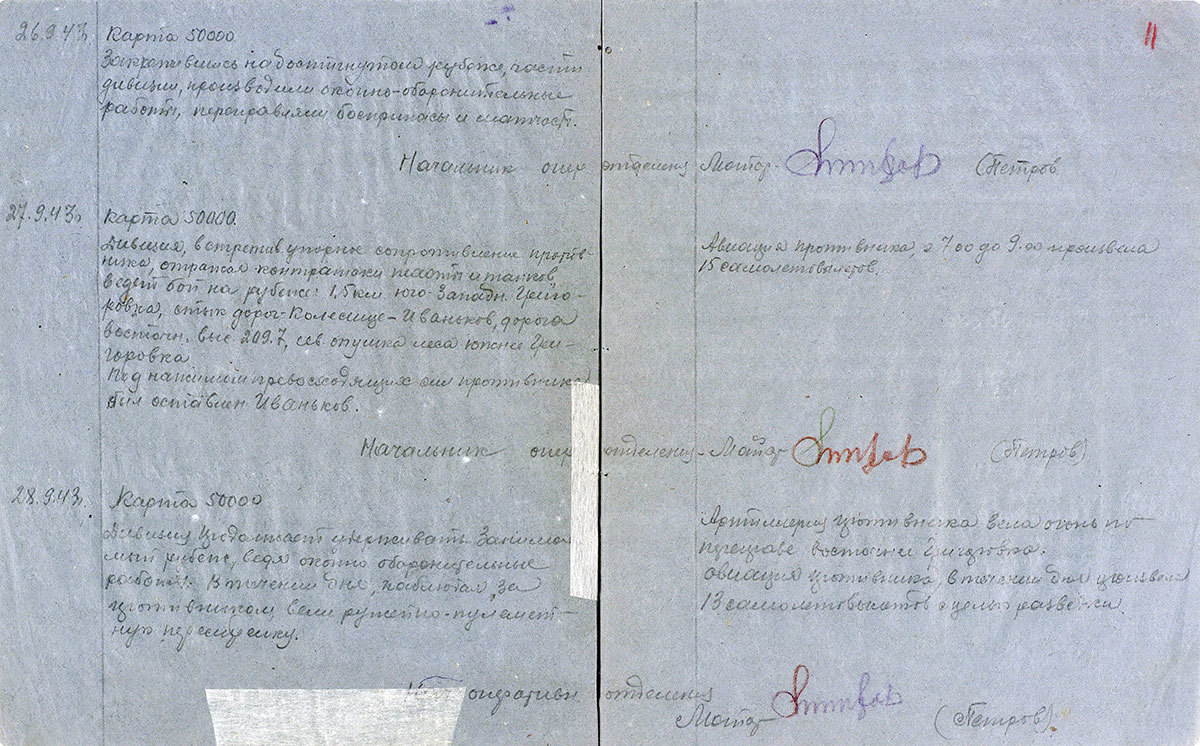 11
26.9.43г. Карта 50000.
Закрепившись на достигнутом рубеже, части
дивизии, производили окопно-оборонительные
работы, переправляли боеприпасы и матчасть.
Начальник опер отделения Майор (Петров
27.9.43г. Карта 50000.
Дивизия, встретив упорное сопротивление против-
ника, отражая контратаки пехоты и танков
ведет бой на рубеже: 1,5 км. юго-западн. Григо-
ровка, стык дорог-Колесище-Иваньков, дорога
восточн. выс 209.7, сев. опушка леса южнее Гри-
горовка
Под нажимом превосходящих сил противника
был оставлен Иваньков.
Авиация противника, с 7.00 до 9.00 произвела
15 самолетовылетов.
Начальник опер отделения-Майор (Петров)
28.9.43г. Карта 50000
Дивизия продолжает удерживать занимае
мый рубеж, ведя окопно оборонительные
работы. В течении дня, наблюдая, за
противником, вели ружейно-пулемет-
ную перестрелку.
Артиллерия противника вела огонь по
переправе восточнее Григоровка.
Авиация противника, в течении дня произвела
13 самолетовылетов с целью разведки.
оперативн. отделения
Майор (Петров)